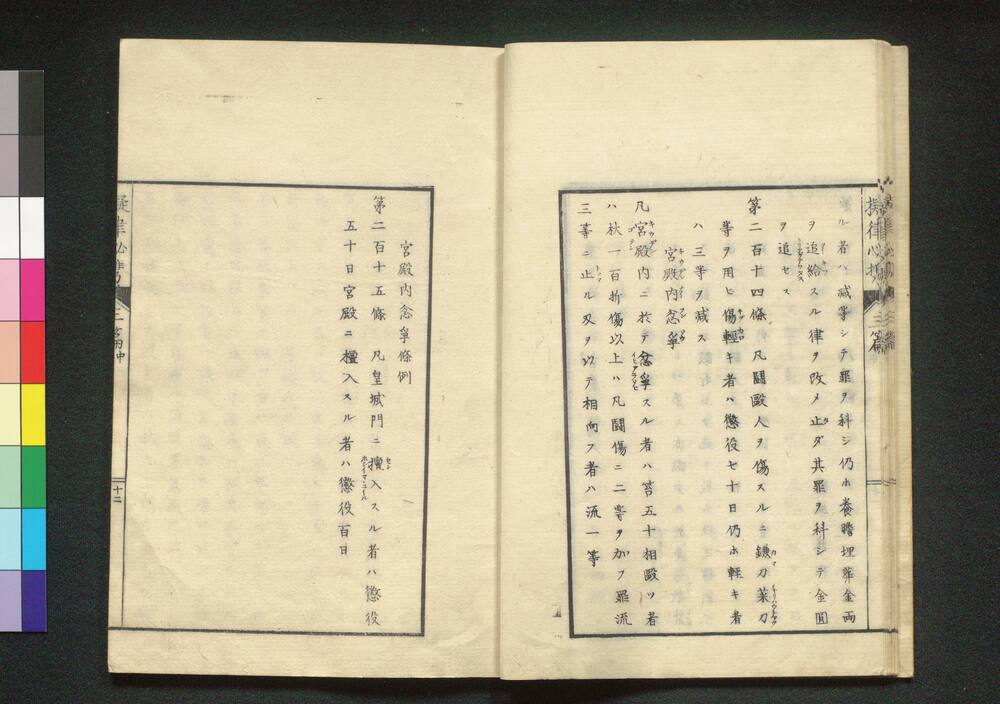 ル者ハ減等シテ罪ヲ科シ仍ホ養贍埋葬金両
ヲ追給スル律ヲ改メ止ダ其罪ヲ科シテ金圓
ヲ追セス
第二百十四條 凡闘毆人ヲ傷スルニ鎌刀菜刀
等ヲ用ヒ傷輕キ者ハ懲役七十日仍ホ輕キ者
ハ三等ヲ減ス
宮殿内忿爭
凡宮殿内ニ於テ忿爭スル者ハ笞五十相毆ツ者
ハ杖一百折傷以上ハ凡闘傷ニ二等ヲ加フ罪流
三等ニ止ル刃ヲ以テ相向フ者ハ流一等
三篇
宮殿内忿爭條例
第二百十五條 凡皇城門ニ擅入スル者ハ懲役
五十日宮殿ニ擅入スル者ハ懲役百日
三篇中
十二